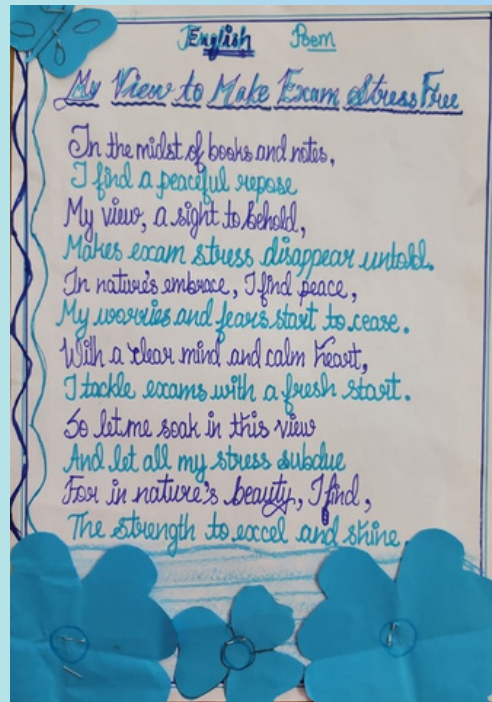 English Poem
My View to Make Exam Stress Free
In the midst of books and notes,
I find a peaceful repose
My view, a sight to behold,
Makes exam stress disappear untold.
In nature's embrace, I find peace,
My worries and fears start to cease.
With a clear mind and calm heart,
I tackle exams with a fresh start.
So let me soak in this view
And let all my stress subdue
For in nature's beauty, I find,
The strength to excel and shine.